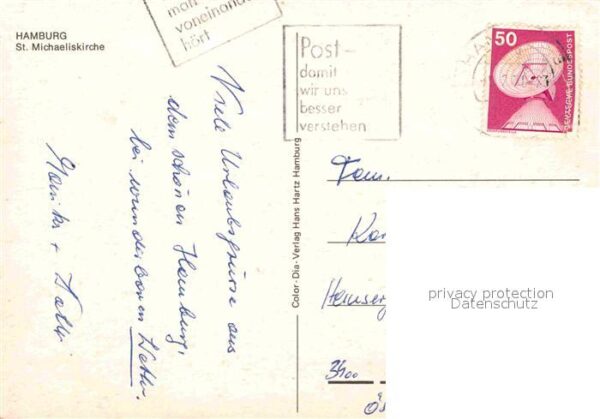 HAMBURG
St. Michaeliskirche
man
voneinander
hört
Post-
damit
wir uns
besser
verstehen
50
DEUTSCHE BUNDESPOST
Viele Urlaubsgrüsse aus
dem schönen Hamburg,
bei wunderbarem Wetter.
Color-Dia-Verlag Hans Hartz Hamburg
Fam.
privacy protection
Datenschutz